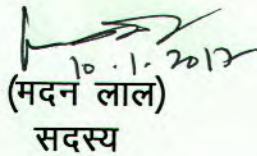 10.1.2017
(मदन लाल)
सदस्य